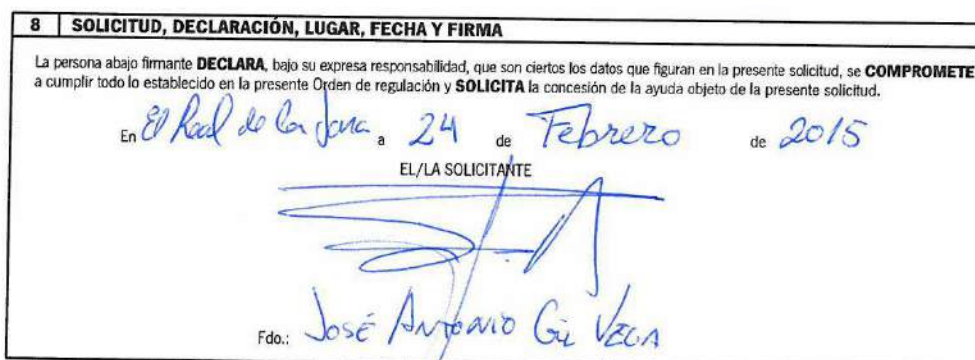 8 SOLICITUD, DECLARACIÓN, LUGAR, FECHA Y FIRMA
La persona abajo firmante DECLARA, bajo su expresa responsabilidad, que son ciertos los datos que figuran en la presente solicitud, se COMPROMETE
a cumplir todo lo establecido en la presente Orden de regulación y SOLICITA la concesión de la ayuda objeto de la presente solicitud.
En El Real de la Jara a 24 de Febrero de 2015
EL/LA SOLICITANTE
Fdo.: JOSÉ ANTONIO Gil VEGA